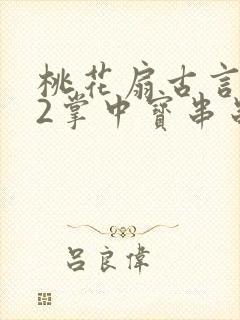 桃花扇古言
2掌中寶串
呂良偉